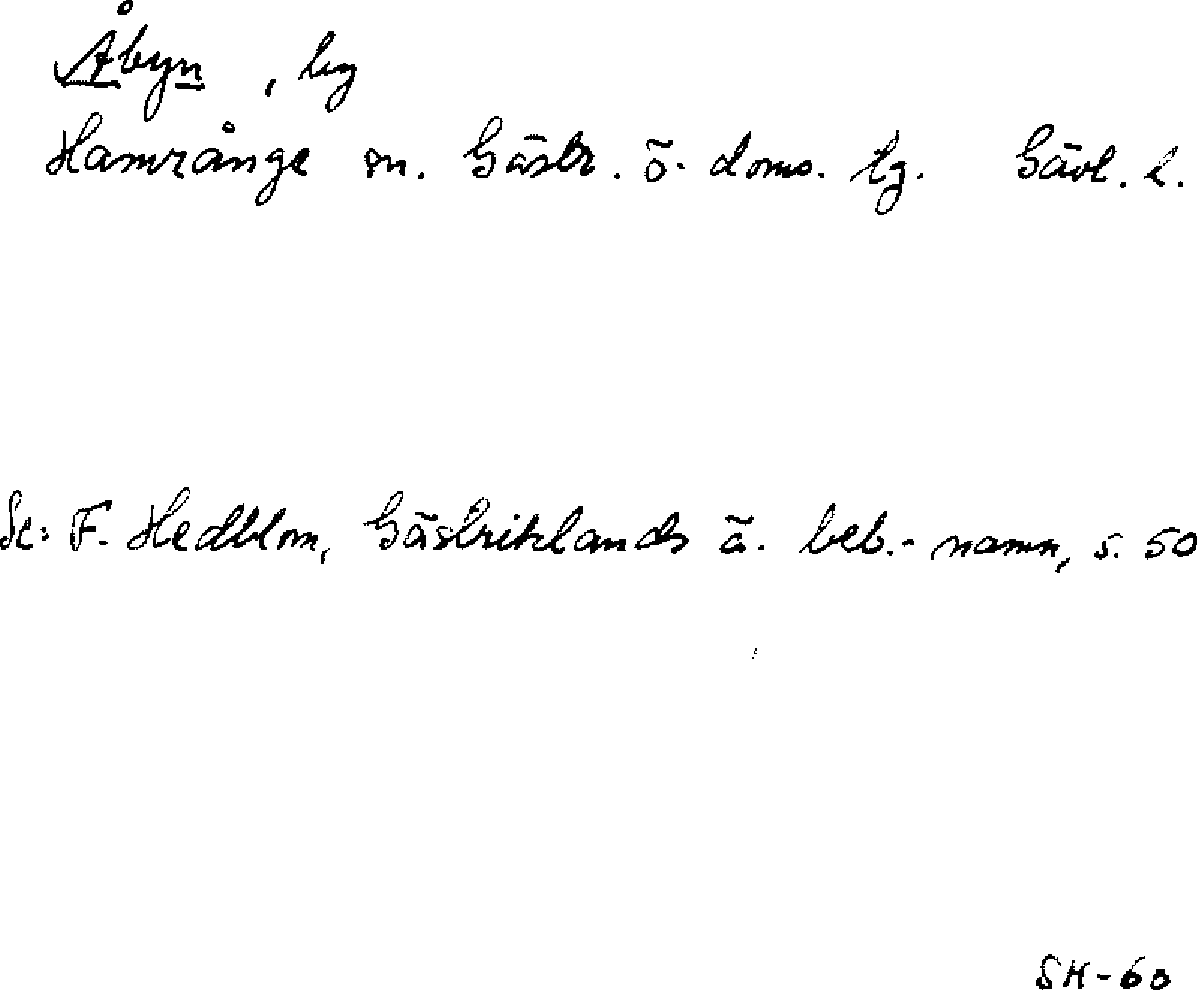 Åbyn, by
Hamrånge sn. Gästr. ö. doms. tg. Gävl. l.
Se: F. Hedblom, Gästriklands ä. beb.-namn, s. 50
SH-60